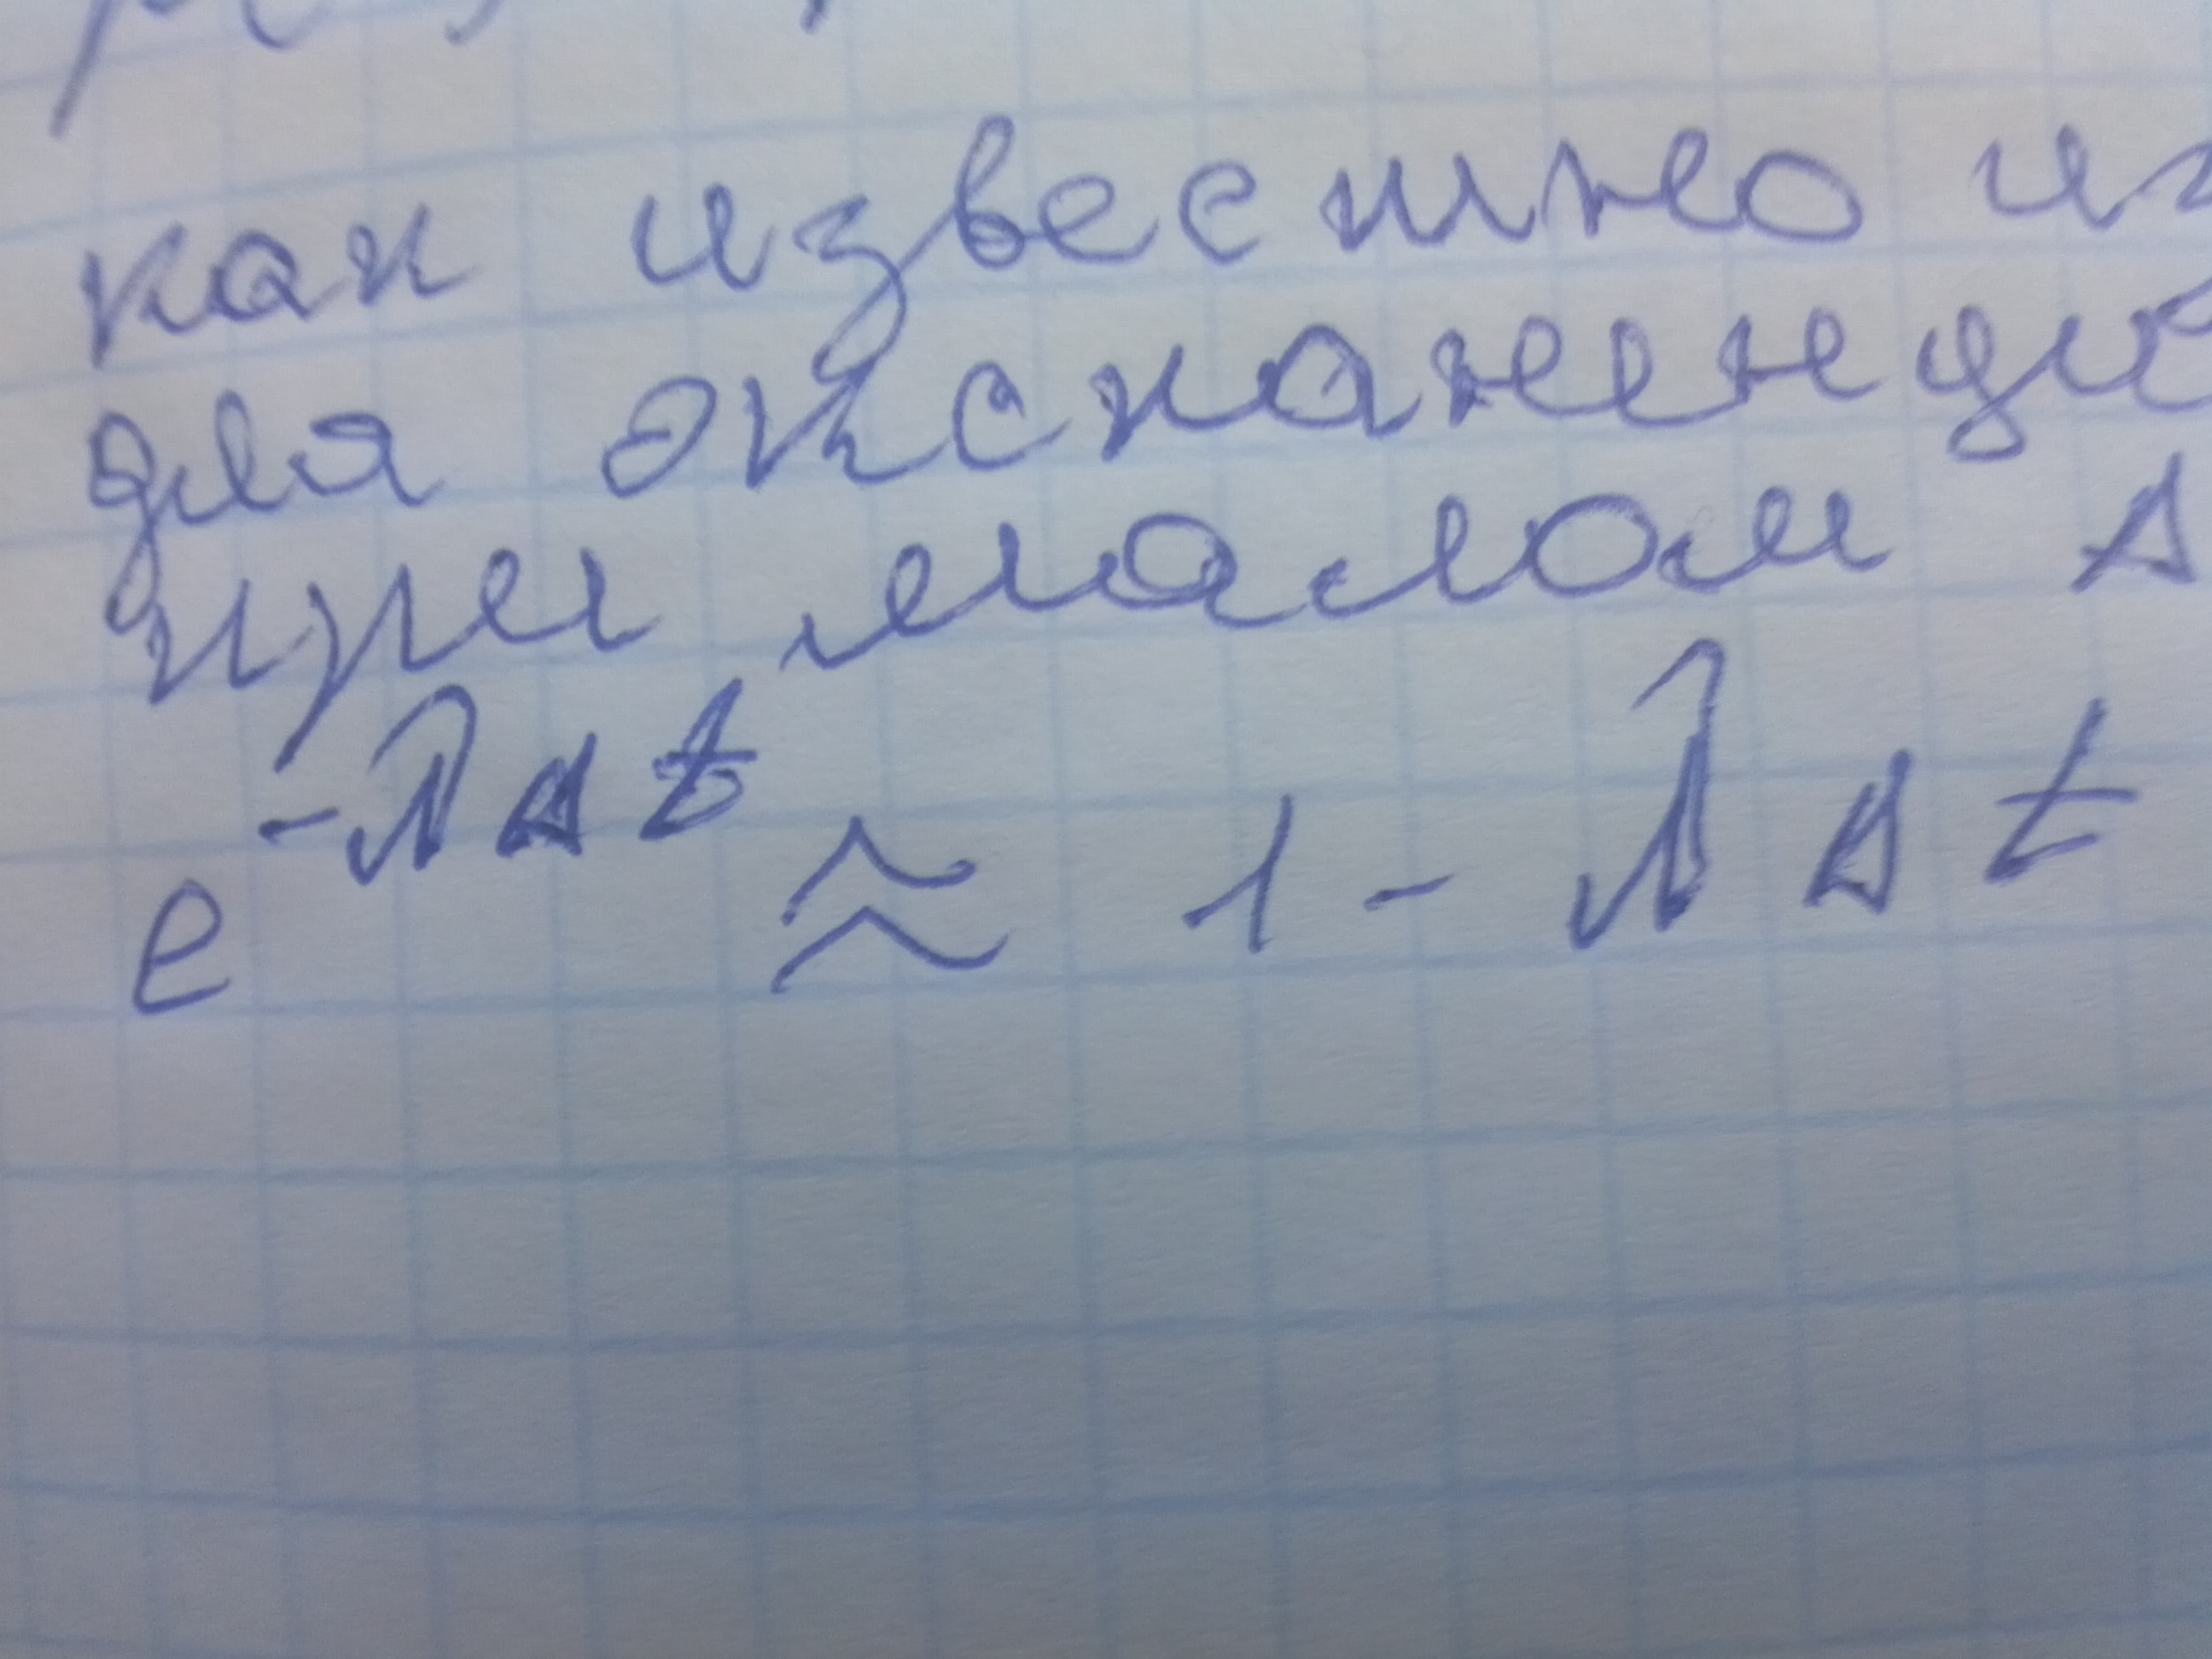 как известно из
для экспоненцие
при малом Δ
e^{-λΔt} ≈ 1 - λΔt